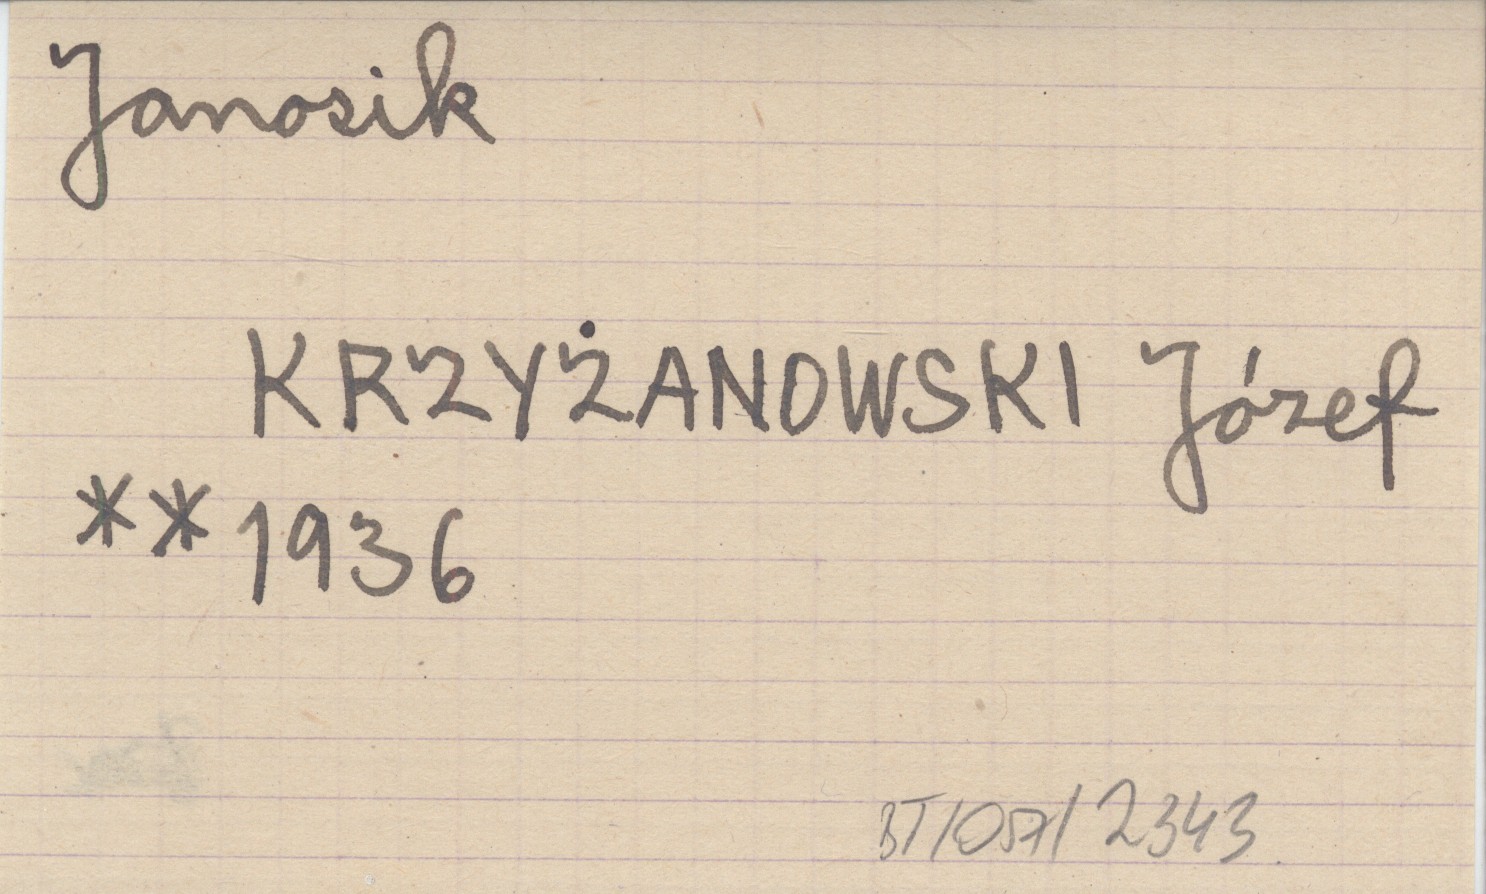 Janosik
KRZYŻANOWSKI Józef
** 1936
BT/057/2343